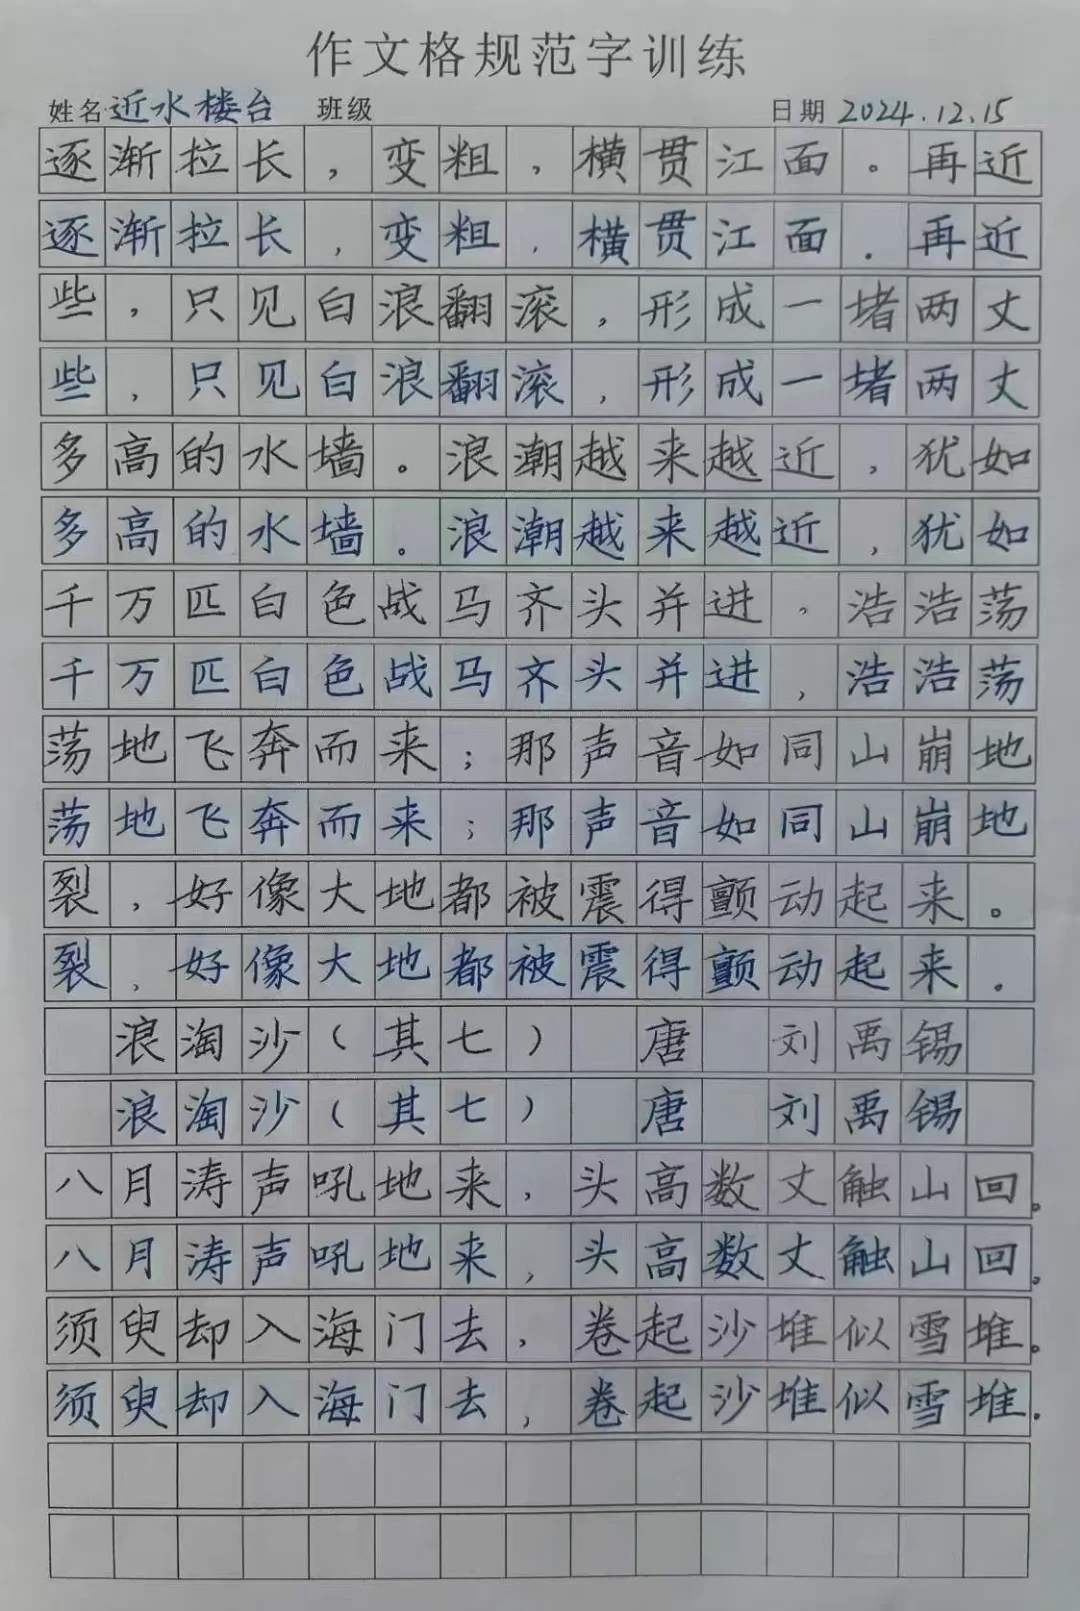 作文格规范字训练
姓名 近水楼台 班级 日期 2024.12.15
逐渐拉长，变粗，横贯江面。再近
逐渐拉长，变粗，横贯江面。再近
些，只见白浪翻滚，形成一堵两丈
些，只见白浪翻滚，形成一堵两丈
多高的水墙。浪潮越来越近，犹如
多高的水墙。浪潮越来越近，犹如
千万匹白色战马齐头并进，浩浩荡
千万匹白色战马齐头并进，浩浩荡
荡地飞奔而来；那声音如同山崩地
荡地飞奔而来；那声音如同山崩地
裂，好像大地都被震得颤动起来。
裂，好像大地都被震得颤动起来。
浪淘沙（其七） 唐 刘禹锡
浪淘沙（其七） 唐 刘禹锡
八月涛声吼地来，头高数丈触山回。
八月涛声吼地来，头高数丈触山回。
须臾却入海门去，卷起沙堆似雪堆。
须臾却入海门去，卷起沙堆似雪堆。